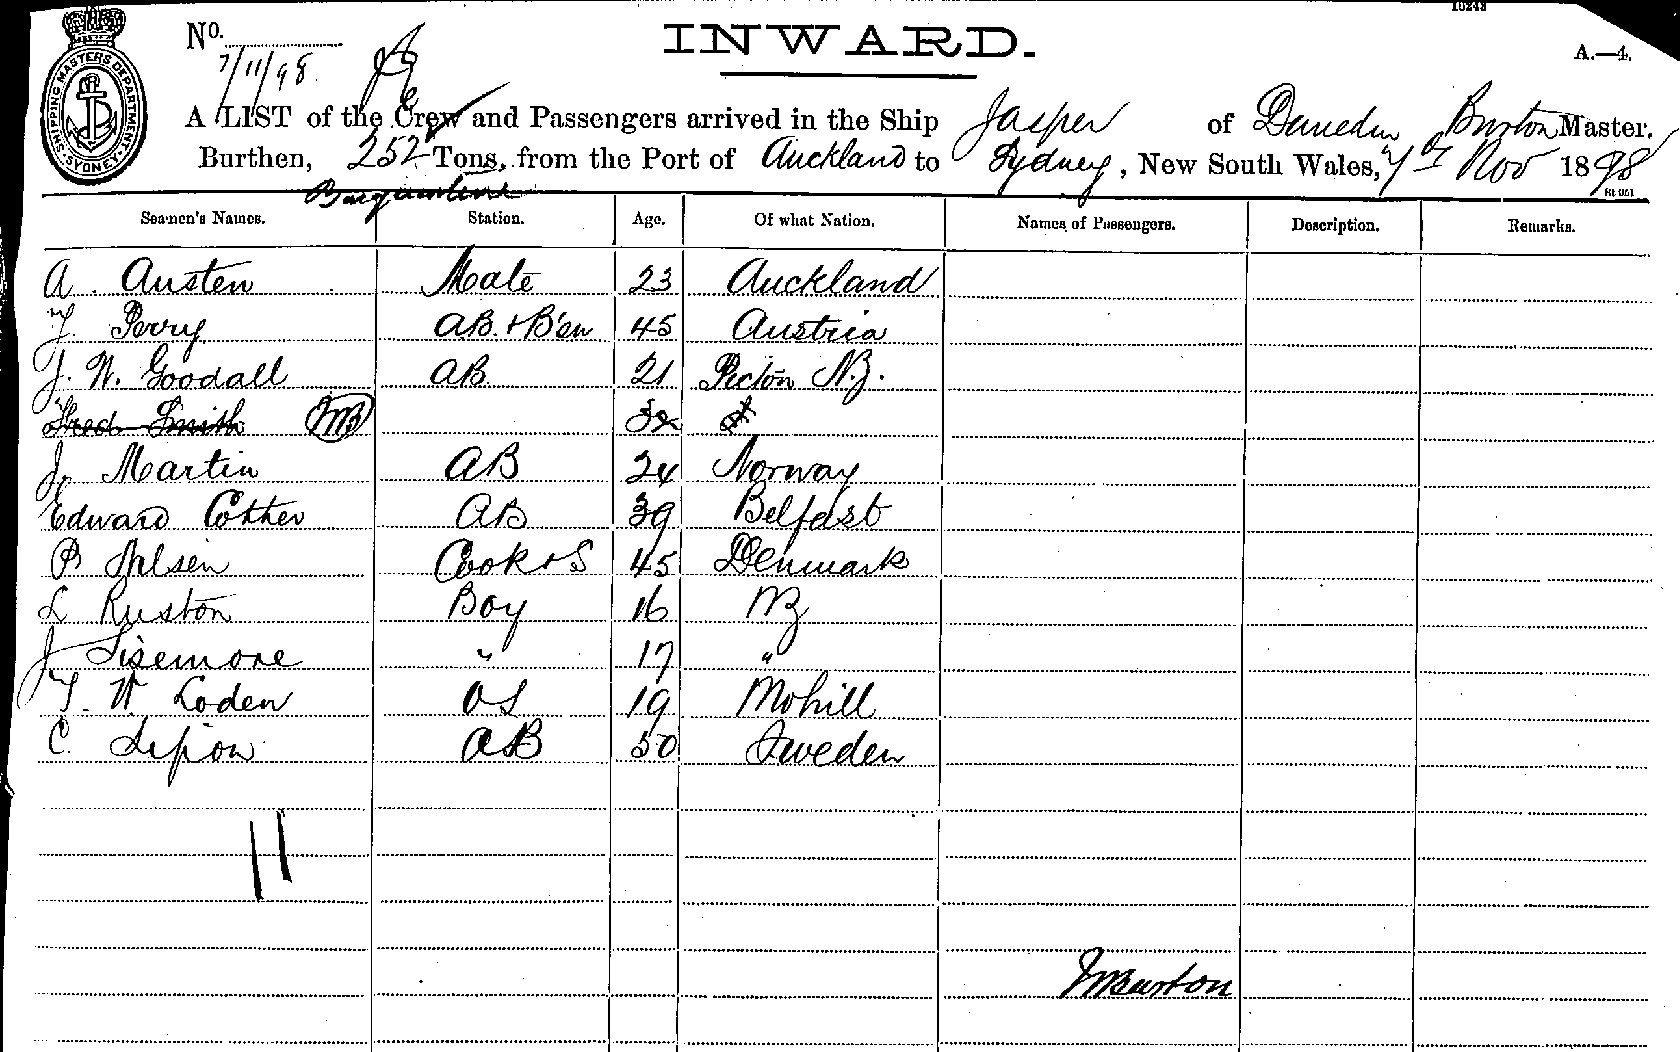 10243
INWARD.
No.
A.—4.
7/11/98.
SHIPPING MASTERS DEPARTMENT. SYDNEY.
A LIST of the Crew and Passengers arrived in the Ship Jasper of Dunedin Burton Master.
Burthen, 252 Tons, from the Port of Auckland to Sydney, New South Wales, 7th Nov 1898
Barquentine
Seamen's Names. Station. Age. Of what Nation. Names of Passengers. Description. Remarks.
A. Austen Mate 23 Auckland
Perry AB. + B'sn 45 Austria
J. W. Goodall AB 21 Picton N.Z.
Fred Smith
J. Martin AB 24 Norway
Edward Cotter AB 39 Belfast
P Nilsen Cook + S 45 Denmark
L Ruston Boy 16 NZ
J Sisemore " 17 "
T. W. Loden OS 19 Mohill
C. AB 50 Sweden
11
J M Burton